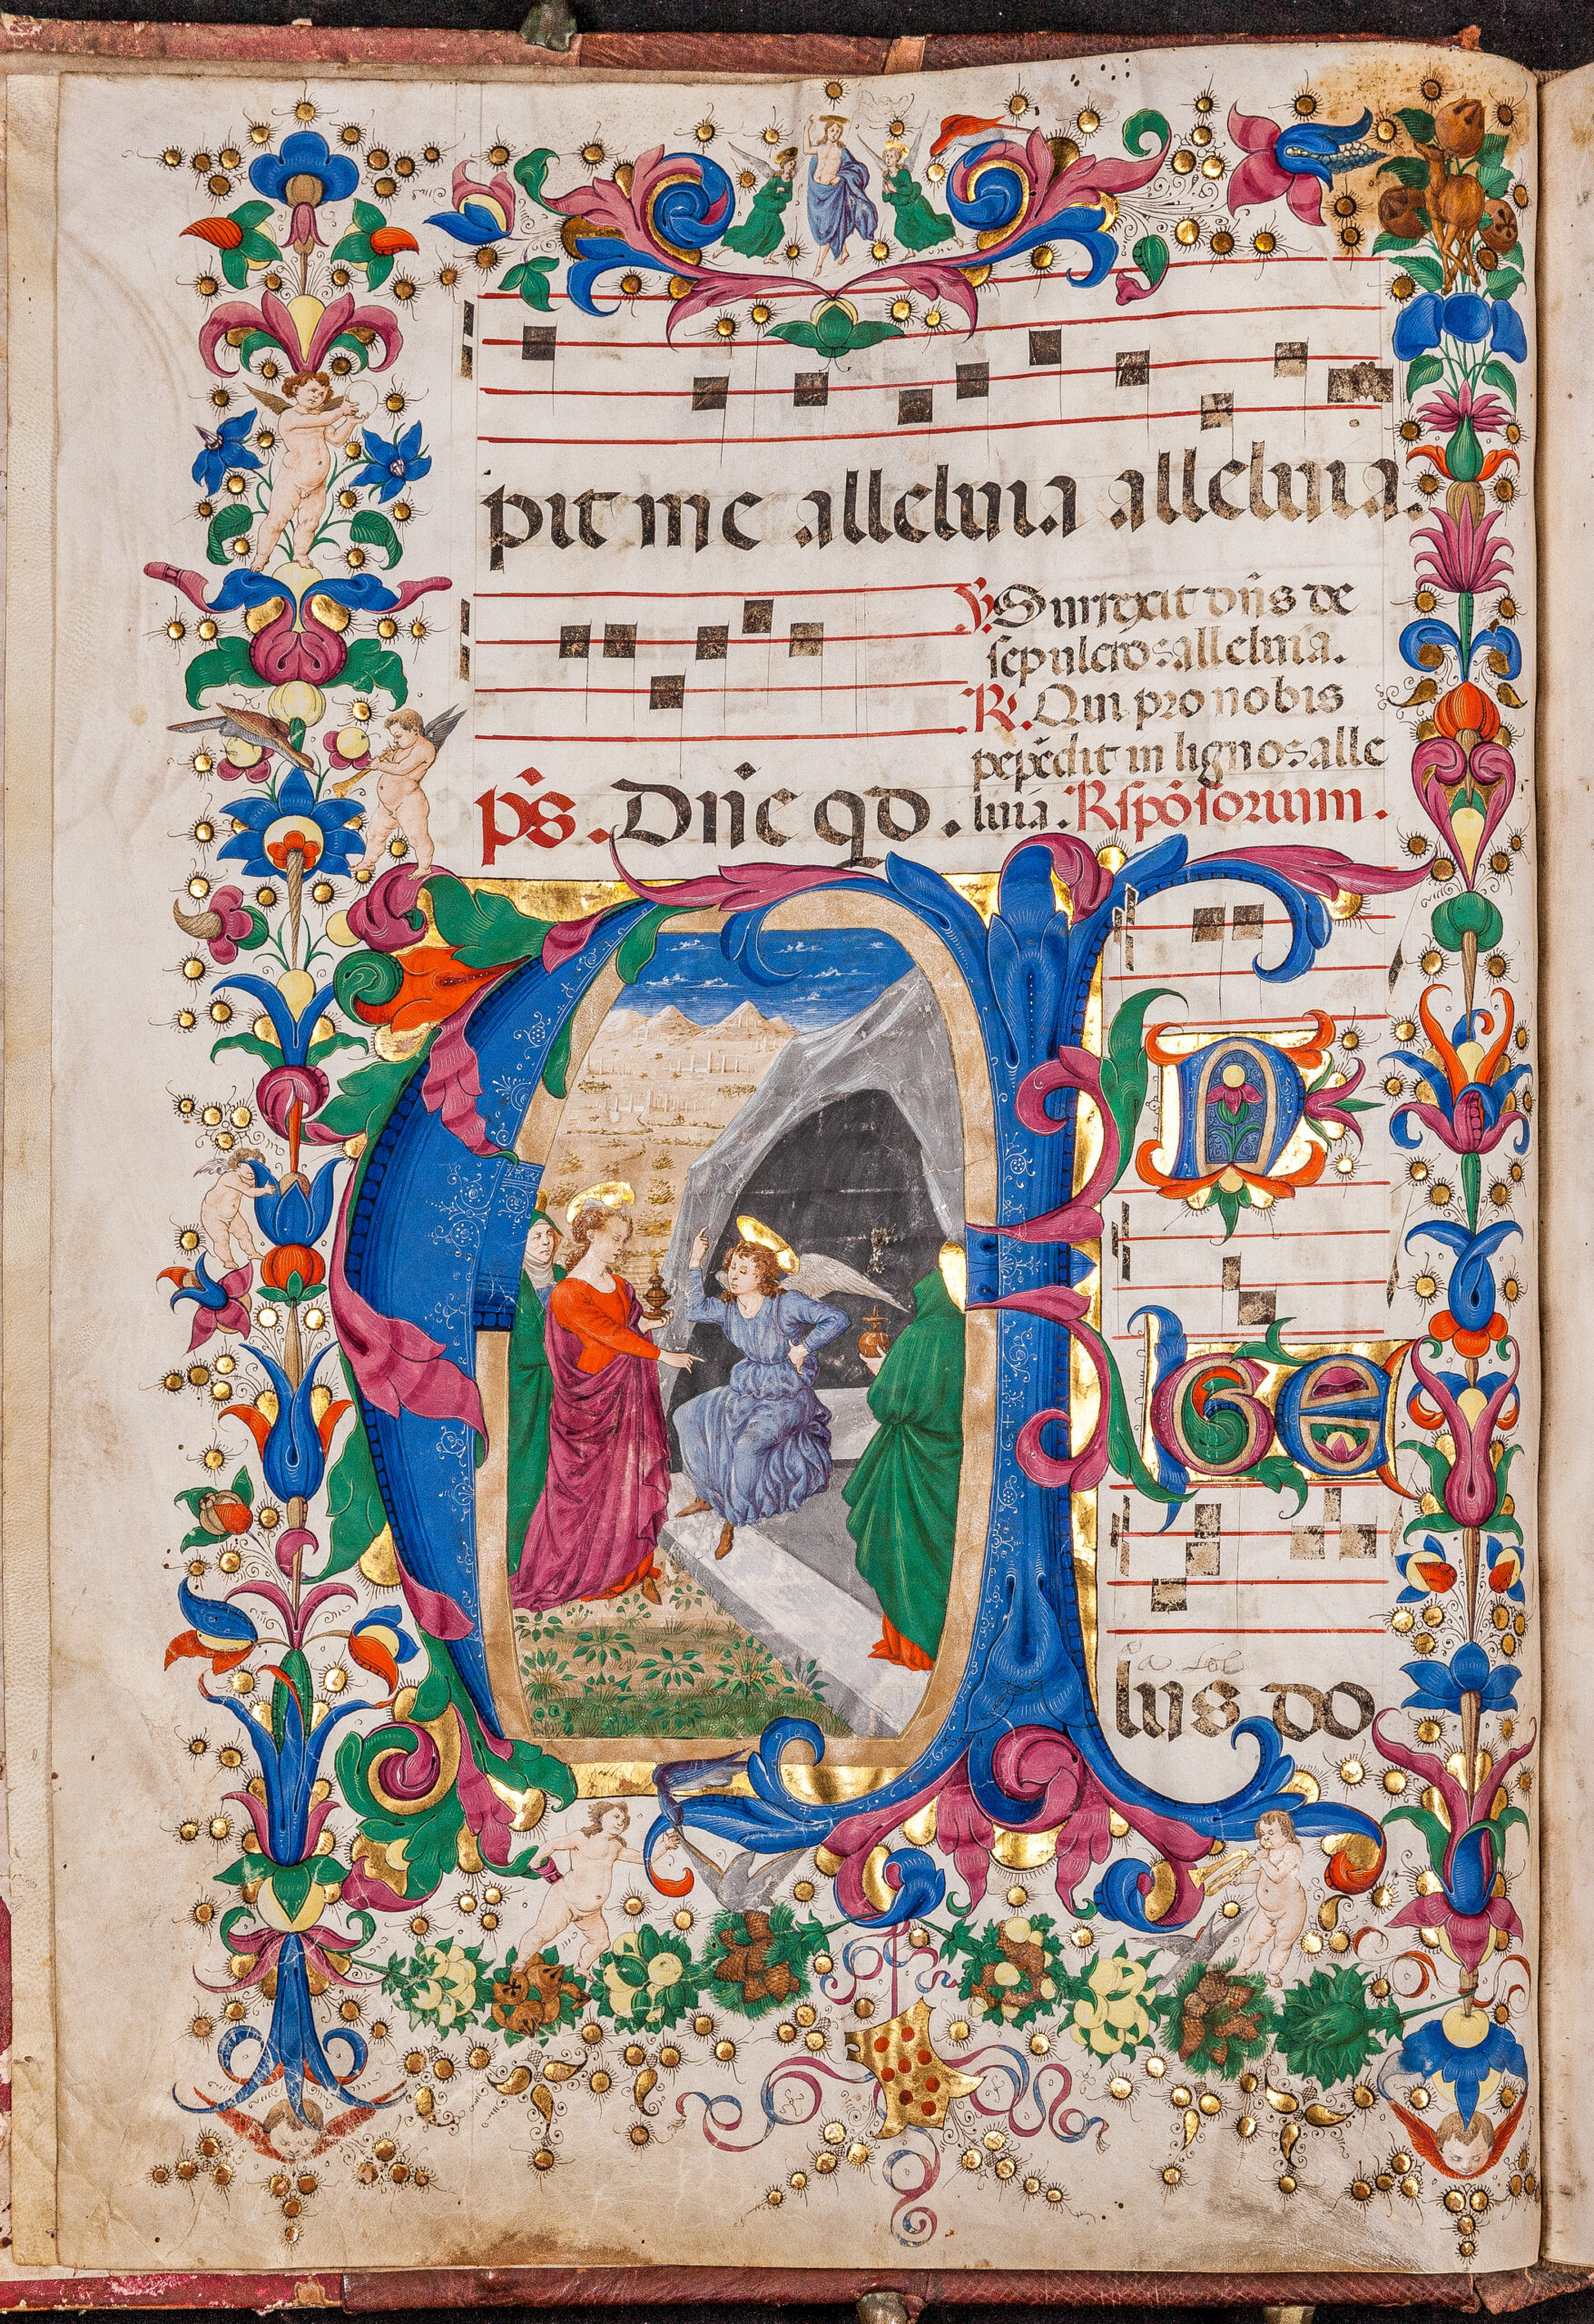 pit me alleluia alleluia.
℣. Surrexit dn̄s de
sepulcro: alleluia.
℟. Qui pro nobis
pepēdit in ligno: alle
luia. Rspōsorium.
p̄s. Dn̄e qd.
A
n
ge
lus do